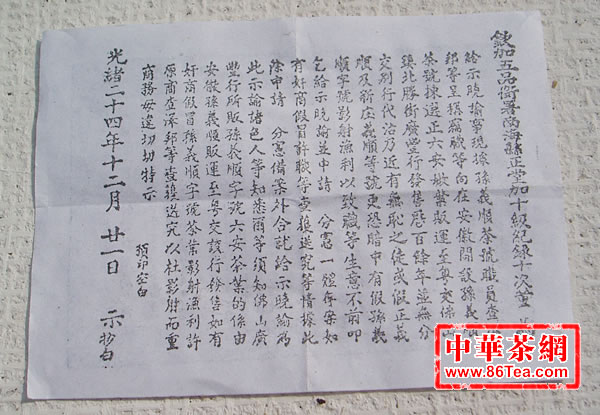 欽加五品銜署南海縣正堂加十級紀錄十次董
給示曉諭事現據孫義順茶號職員查
邦等呈稱竊職等向在安徽開設孫義順
茶號揀選正六安嫩蕊販運至粵交佛
鎮北勝街廣豐行發售歷百餘年並無分
交別行代沽乃近有無恥之徒或假正義
順及新庄義順等號更恐暗中有假孫義
順字號影射漁利以致職等生意不前叩
乞給示曉諭並申請 分憲一體存案如
有奸商假冒許職等查獲送究等情據此
除申請 分憲備案外合就給示曉諭為
此示諭諸色人等知悉爾等須知佛山廣
豐行所販孫義順字號六安茶葉的係由
安徽孫義順販運至粵交該行發售如有
奸商假冒孫義順字號茶葉影射漁利許
原商查深邦等查獲送究以杜影射而重
商務毋違切切特示
預印空白
光緒二十四年十二月 廿一日 示抄白
中華茶網
www.86Tea.com